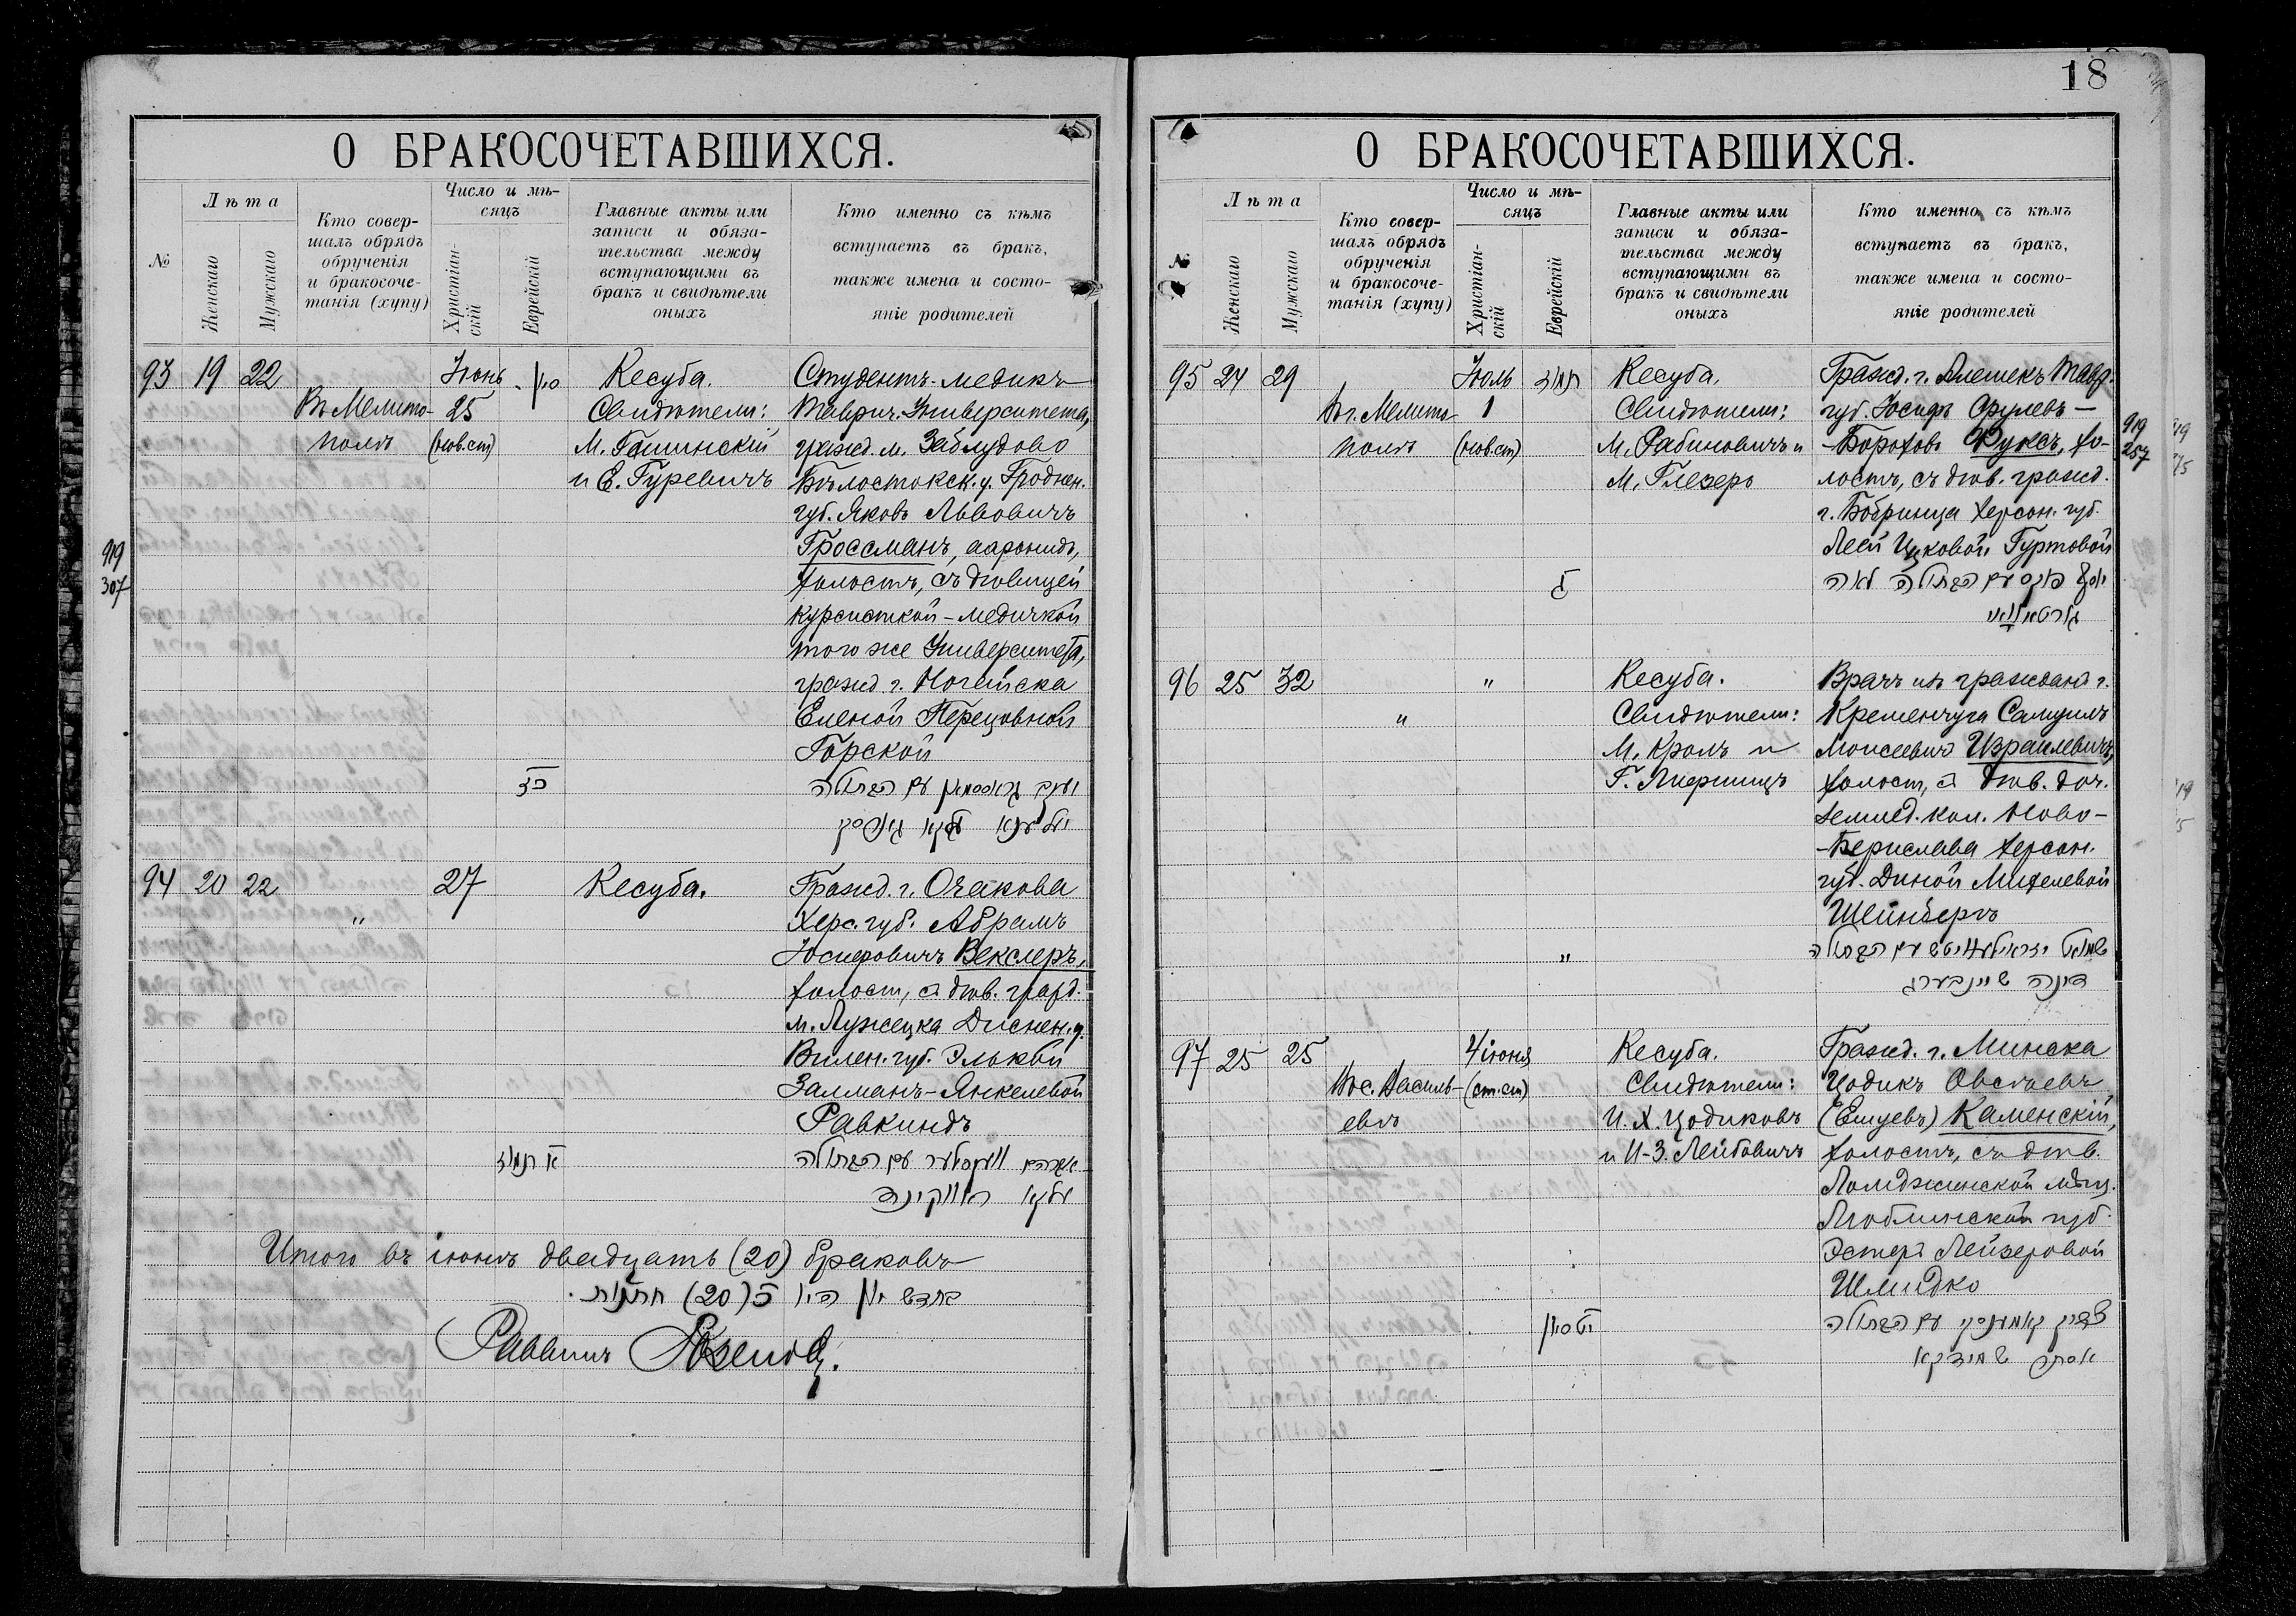 О БРАКОСОЧЕТАВШИХСЯ.
№
Лѣта
Женскаго
Мужскаго
Кто совер-
шалъ обрядъ
обрученія
и бракосоче-
танія (хупу)
Число и мѣ-
сяцъ
Христіан-
скій
Еврейскій
Главные акты или
записи и обяза-
тельства между
вступающими въ
бракъ и свидѣтели
оныхъ
Кто именно съ кѣмъ
вступаетъ въ бракъ,
также имена и состо-
яніе родителей
93 19 22
Въ Мелито-
полѣ
Іюнь
25
(нов.ст)
סיון
כז
Кесуба.
Свидѣтели:
М. Гошинскій
и Е. Гуревичъ
Студентъ-медикъ
Таврич. Университета,
гражд. м. Заблудово
Бѣлостокск. у. Гроднен.
губ. Яковъ Львовичъ
Гроссманъ, ааронидъ,
холостъ, съ дѣвицей
курсисткой-медичкой
того же Университета,
гражд. г. Ногайска
Еленой Перецовной
Горской
יעקב גראסמאן עם הבתולה
919
307
94 20 22
"
27
א תמוז
Кесуба.
Гражд. г. Очакова
Херс. губ. Абрамъ
Іосифовичъ Векслеръ,
холост, съ дѣв. гражд.
м. Лужецка Диснен. у.
Вилен. губ. Элькой
Залманъ-Янкелевой
Равкиндъ
אברהם וועקסלער עם הבתולה
עלקא ראווקינד
Итого въ іюнѣ двадцать (20) браковъ
בחדש יון היו כ (20) חתנות.
Раввинъ
18
О БРАКОСОЧЕТАВШИХСЯ.
№
Лѣта
Женскаго
Мужскаго
Кто совер-
шалъ обрядъ
обрученія
и бракосоче-
танія (хупу)
Число и мѣ-
сяцъ
Христіан-
скій
Еврейскій
Главные акты или
записи и обяза-
тельства между
вступающими въ
бракъ и свидѣтели
оныхъ
Кто именно съ кѣмъ
вступаетъ въ бракъ,
также имена и состо-
яніе родителей
95 24 29
Въ г. Мелито-
полѣ
Іюль
1
(нов.ст)
תמוז
ג
Кесуба.
Свидѣтели:
М. Рабиновичъ и
М. Глезеръ
Гражд. г. Алешекъ Тавр.
губ. Іосифъ Срулевъ-
-Бороховъ Фуксъ, хо-
лостъ, съ дѣв. гражд.
г. Бобринца Херсон. губ.
Леей Ицковой Гуртовой
יוסף פוקס עם הבתולה לאה
919
257
96 25 32
"
"
"
Кесуба.
Свидѣтели:
М. Кролъ и
Врачъ изъ гражданъ г.
Кременчуга Самуилъ
Моисеевичъ Израилевичъ,
холост, съ дѣв. доч.
землед. кол. Ново-
-Берислава Херсон.
губ. Диной Михелевой
Шейнбергъ
שמואל יזראילעוויטש עם הבתולה
דינה שיינבערג
97 25 25
Въ с. Василь-
евкѣ
4 іюня
(ст.ст)
יט סיון
Кесуба.
Свидѣтели:
И. Х. Цодиковъ
и И-З. Лейбовичъ
Гражд. г. Минска
Цодикъ Овсѣевъ
(Ешуевъ) Каменскій,
холостъ, съ дѣв.
Ломджинской мѣщ.
Люблинской губ.
Эстеръ Лейзеровой
Шмидко
צדיק קאמענסקי עם הבתולה
אסתר שמידקא